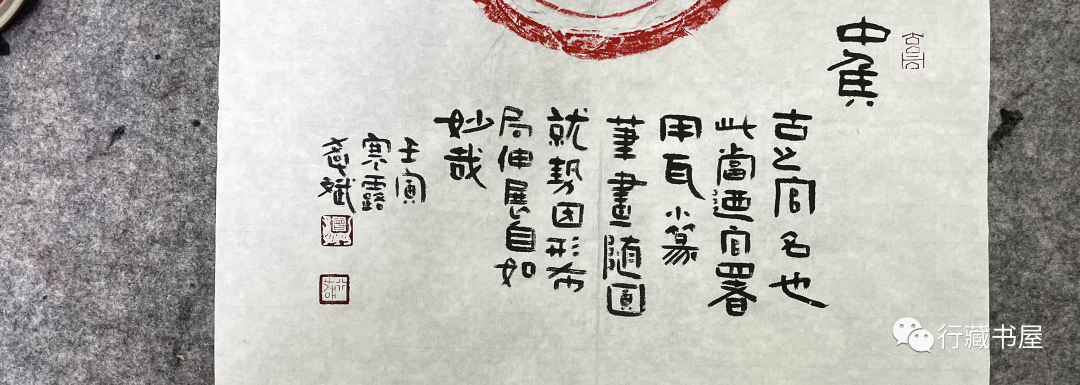 中
古之官名也
此當迺官署
用瓦小篆
筆畫随圓
就勢因形布
局伸展自如
妙哉
壬寅
寒露
斌
行藏书屋